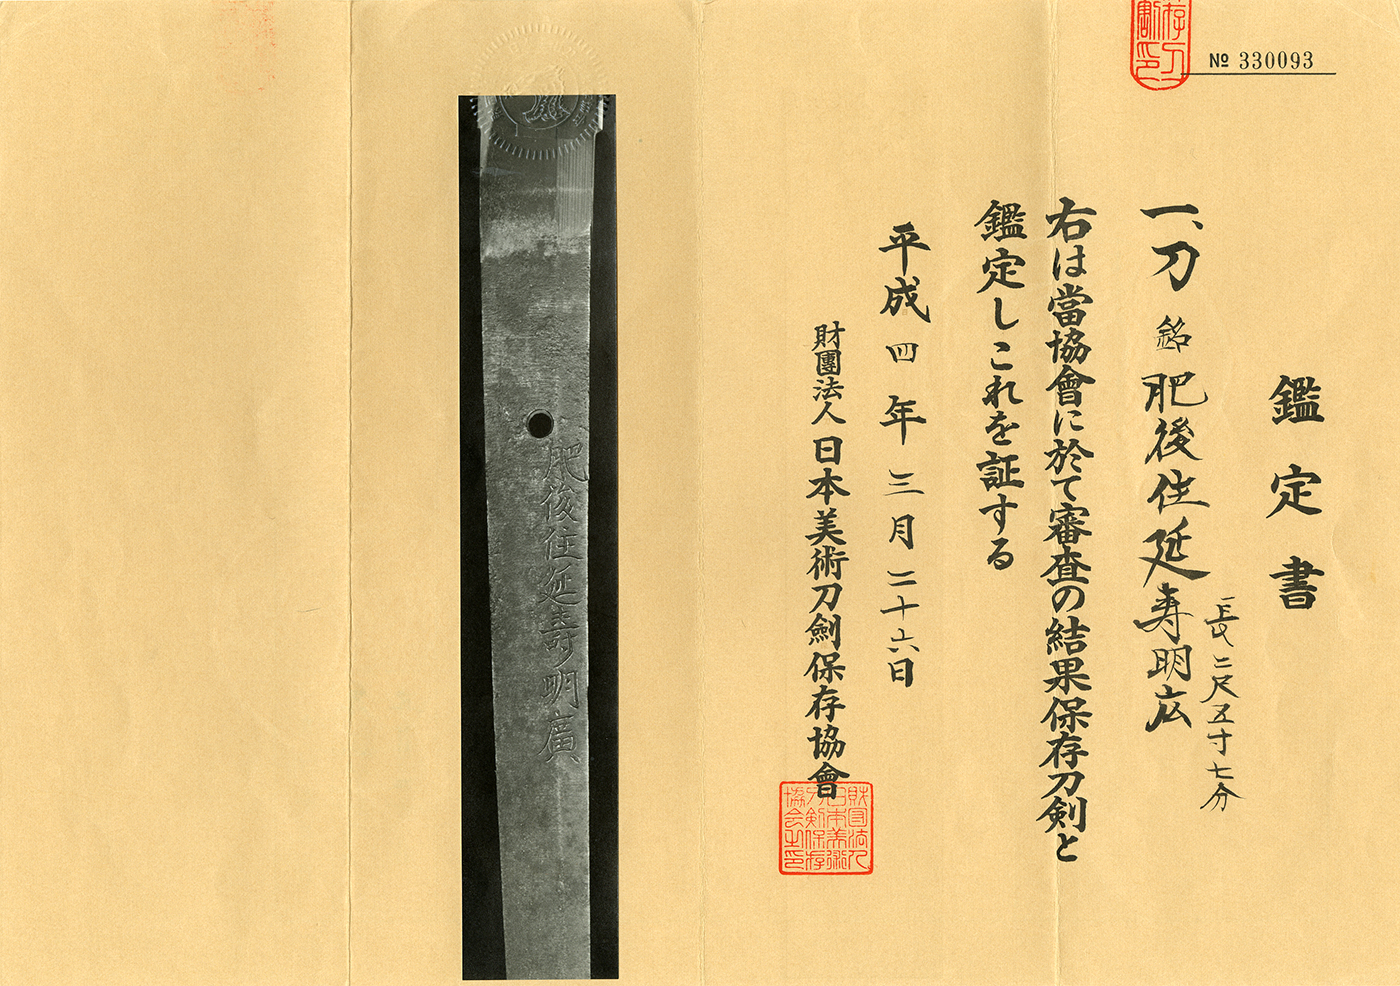 № 330093
鑑定書
一、刀 銘 肥後住延寿明広
長二尺五寸七分
右は當協會に於て審査の結果保存刀剣と
鑑定しこれを証する
平成四年三月二十六日
財團法人 日本美術刀劍保存協會
財団法人日本美術刀剣保存協会之印
肥後住延壽明廣